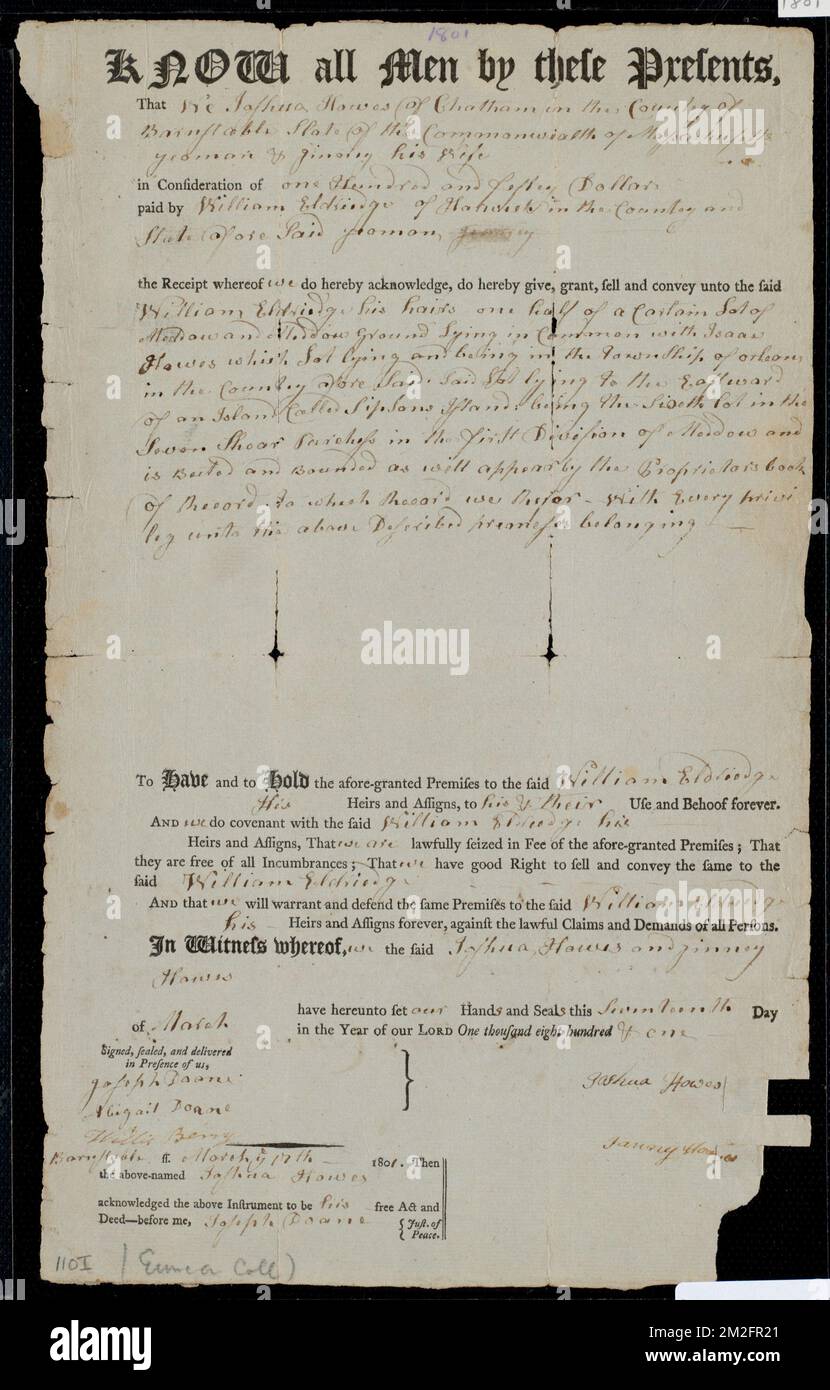 1801
1801
KNOW all Men by theſe Preſents,
That We Joshua Howes of Chatham in the County of
Barnstable State of the Commonwealth of Massachusetts
yeoman & Jinney his Wife
in Conſideration of one Hundred and fiftey Dollars
paid by William Eldriedge of Harwich in the Countey and
State afore Said yeoman,
the Receipt whereof we do hereby acknowledge, do hereby give, grant, ſell and convey unto the ſaid
William Eldriedge his hairs one half of a Cartain Lot of
Meddow and Meddow Ground Lying in Common with Isaac
Howes which Lot lying and being in the Township of orleans
in the Countey afore Said. Said Lot lying to the Eastward
of an Island Called Sipsons Island: being the Sixeth lot in the
Seven Shear in the first Division of Meddow and
is Buted and Bounded as will appear by the Proprietors book
of Record. to which Record we Refer - With Every privi
leg unto the above Described belonging
a alamy a
To Have and to Hold the afore-granted Premiſes to the ſaid William Eldriedge
His Heirs and Aſſigns, to his & their Uſe and Behoof forever.
AND we do covenant with the ſaid William Eldriedge his
Heirs and Aſſigns, That we are lawfully ſeized in Fee of the afore-granted Premiſes; That
they are free of all Incumbrances; That we have good Right to ſell and convey the ſame to the
ſaid William Eldriedge
AND that we will warrant and defend the ſame Premiſes to the ſaid William Eldriedge
his Heirs and Aſſigns forever, againſt the lawful Claims and Demands of all Perſons.
In Witneſs whereof, we the ſaid Joshua Howes and Jinney
Howes
have hereunto ſet our Hands and Seals this Seventeenth Day
of March in the Year of our LORD One thouſand eight hundred & one
Signed, ſealed, and delivered
in Preſence of us,
Joseph Doane
Joshua Howes
Abigail Doane
Berry
Howes
Barnstable ſſ. March ye 17th 1801. Then
the above-named Joshua Howes
acknowledged the above Inſtrument to be his free Act and
Deed—before me, Joseph Doane { Juſt. of
Peace.
110I (Eunice Coll)
alamy
Image ID: 2M2FR21
www.alamy.com